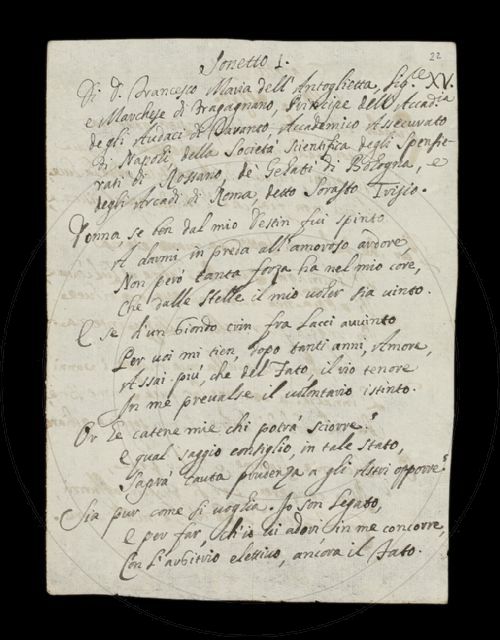 22
Sonetto 1.
Di D. Francesco Maria dell' Antoglietta, Sig.re XV.
e Marchese di Fragagnano, Principe dell' Accad.ia
degli Audaci di Taranto, Accademico Assecurato
di Napoli, della Società Scientifica degli Spensie-
rati di Rossano, de' Gelati di Bologna, e
degli Arcadi di Roma, detto Sorasto Trisio.
Donna, se ben dal mio Destin fui spinto
A darmi in preda all' amoroso ardore,
Non però tanta forza ha nel mio core,
Che dalle Stelle il mio voler sia vinto.
E se d'un biondo crin fra Lacci avvinto
Per voi mi tien, dopo tanti anni, Amore,
Assai più, che del Fato, il rio tenore
In me prevalse il volontario istinto.
Or Le catene mie chi potrà sciorre?
e qual saggio consiglio, in tale stato,
Saprà cauta prudenza a gli Astri opporre?
Sia pur come si voglia. Io son Legato,
e per far, ch'io vi adori in me concorre,
Con L'arbitrio elettivo, ancora il Fato.